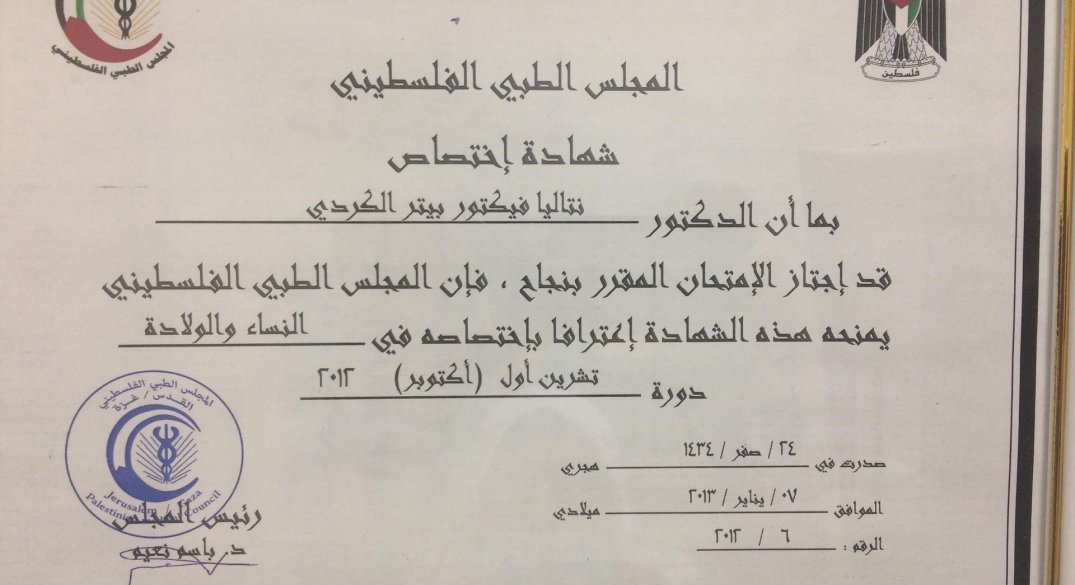 المجلس الطبي الفلسطيني
فلسطين
المجلس الطبي الفلسطيني
شهادة إختصاص
بما أن الدكتور نتاليا فيكتور بيتر الكردي
قد إجتاز الإمتحان المقرر بنجاح ، فإن المجلس الطبي الفلسطيني
يمنحه هذه الشهادة إعترافا بإختصاصه في النساء والولادة
دورة تشرين أول (أكتوبر) ٢٠١٢
صدرت في ٢٤/ صفر / ١٤٣٤ هجري
الموافق ٠٧/ يناير / ٢٠١٣ ميلادي
الرقم : ٦ / ٢٠١٢
المجلس الطبي الفلسطيني
القدس / غزة
Jerusalem Gaza
Council
رئيس المجلس
د. باسم نعيم